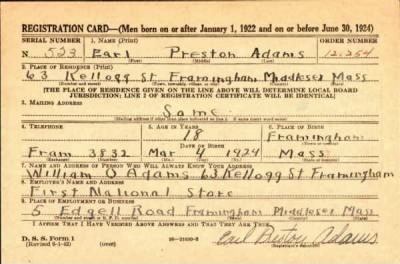 REGISTRATION CARD—(Men born on or after January 1, 1922 and on or before June 30, 1924)
SERIAL NUMBER 1. NAME (Print) ORDER NUMBER
N 523 Earl Preston Adams 12,254
(First) (Middle) (Last)
2. PLACE OF RESIDENCE (Print)
63 Kellogg St Framingham Middlesex Mass
[THE PLACE OF RESIDENCE GIVEN ON THE LINE ABOVE WILL DETERMINE LOCAL BOARD
JURISDICTION; LINE 2 OF REGISTRATION CERTIFICATE WILL BE IDENTICAL]
3. MAILING ADDRESS
Same
[Mailing address if other than place indicated on line 2. If same insert word same]
4. TELEPHONE 5. AGE IN YEARS 6. PLACE OF BIRTH
18 Framingham
DATE OF BIRTH
Fram 3832 Mar 4 1924 Mass
(Exchange) (Number) (Mo.) (Day) (Yr.) (State or country)
7. NAME AND ADDRESS OF PERSON WHO WILL ALWAYS KNOW YOUR ADDRESS
William O Adams 63 Kellogg St Framingham
8. EMPLOYER'S NAME AND ADDRESS
First National Store
9. PLACE OF EMPLOYMENT OR BUSINESS
5 Edgell Road Framingham Middlesex Mass
I AFFIRM THAT I HAVE VERIFIED ABOVE ANSWERS AND THAT THEY ARE TRUE.
D. S. S. Form 1
(Revised 6-1-42) (over) 16—21630-2
Earl Preston Adams
(Registrant's signature)